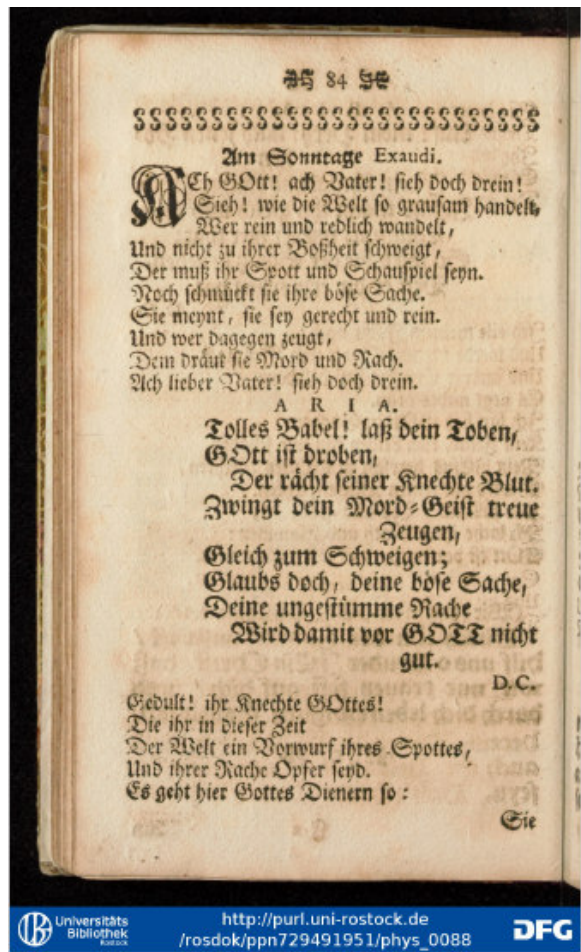 84
Am Sonntage Exaudi.
ACh GOtt! ach Vater! sieh doch drein!
Sieh! wie die Welt so grausam handelt,
Wer rein und redlich wandelt,
Und nicht zu ihrer Boßheit schweigt,
Der muß ihr Spott und Schauspiel seyn.
Noch schmückt sie ihre böse Sache.
Sie meynt, sie sey gerecht und rein.
Und wer dagegen zeugt,
Dem dräut sie Mord und Rach.
Ach lieber Vater! sieh doch drein.
ARIA.
Tolles Babel! laß dein Toben,
GOtt ist droben,
Der rächt seiner Knechte Blut.
Zwingt dein Mord-Geist treue
Zeugen,
Gleich zum Schweigen;
Glaubs doch, deine böse Sache,
Deine ungestümme Rache
Wird damit vor GOTT nicht
gut.
D.C.
Gedult! ihr Knechte GOttes!
Die ihr in dieser Zeit
Der Welt ein Vorwurf ihres Spottes,
Und ihrer Rache Opfer seyd.
Es geht hier Gottes Dienern so:
Sie
Universitäts
Bibliothek
Rostock
http://purl.uni-rostock.de
/rosdok/ppn729491951/phys_0088
DFG